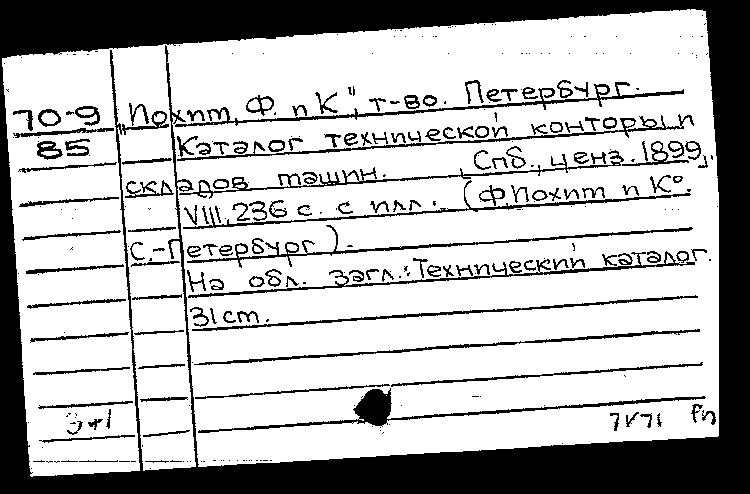 70-9
85
„Похит, Ф. и К°", т-во. Петербург.
Каталог технической конторы и
складов машин. [Спб., ценз. 1899].
VIII, 236 с. с илл. (Ф. Похит и К°.
С.-Петербург).
На обл. загл.: Технический каталог.
31 cm.
3+1
7/V71